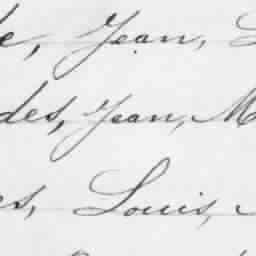 e, Jean,
des, Jean, M
es, Louis,